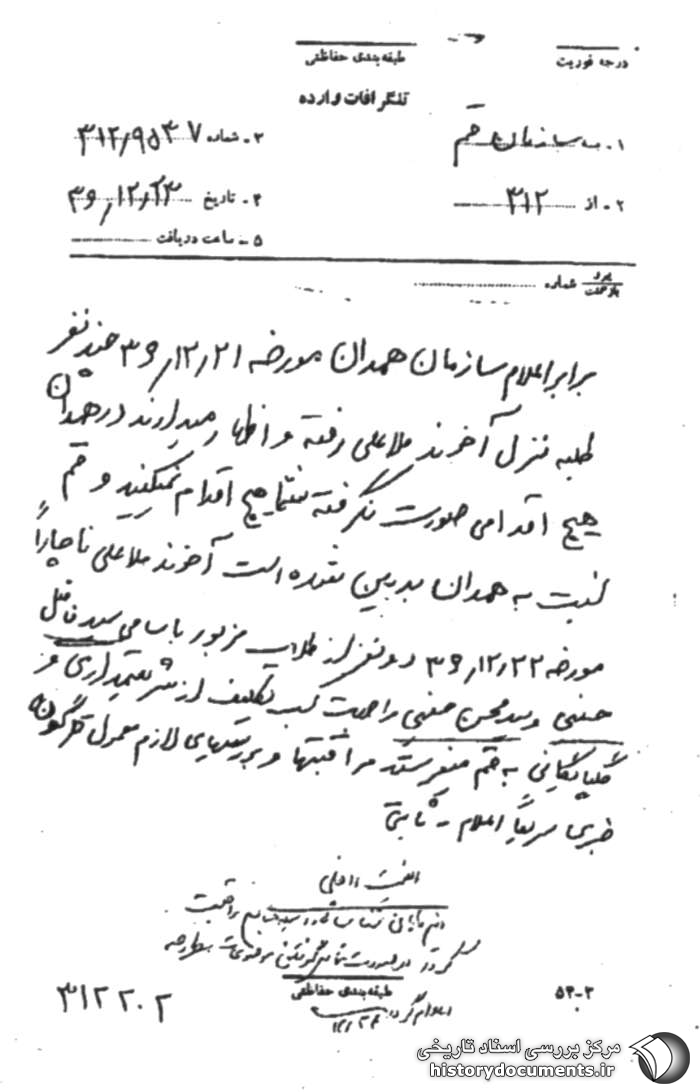 درجه فوریت
طبقه‌بندی حفاظتی
تلگرافات وارده
۱ـ به سازمان قم
۳ـ شماره ۳۱۲/۹۵۴۷
۲ـ از ۳۱۲
۴ـ تاریخ ۳۶/۱۲/۲۳
۵ـ ساعت دریافت
شماره
برابر اعلام سازمان همدان مورخه ۳۶/۱۲/۲۱ چند نفر
طلبه منزل آخوند ملاعلی رفته و اظهار میدارند در همدان
هیچ اقدامی صورت نگرفته شما هیچ اقدام نمیکنید و قم
نسبت به همدان بدبین شده است آخوند ملاعلی ناچاراً
مورخه ۳۶/۱۲/۲۲ دو نفر از طلاب مزبور باسامی سید فاضل
حسینی و سید محسن حسینی را جهت کسب تکلیف از شریعتمداری و
گلپایگانی به قم میفرستد مراقبتها و بررسیهای لازم معمول هرگونه
خبری سریعاً اعلام ـ ثابتی
امنیت داخلی
مراقبت
طبقه‌بندی حفاظتی
اعلام گردد
۳۱۲۲۰۲
۵۴-۳
مرکز بررسی اسناد تاریخی
historydocuments.ir